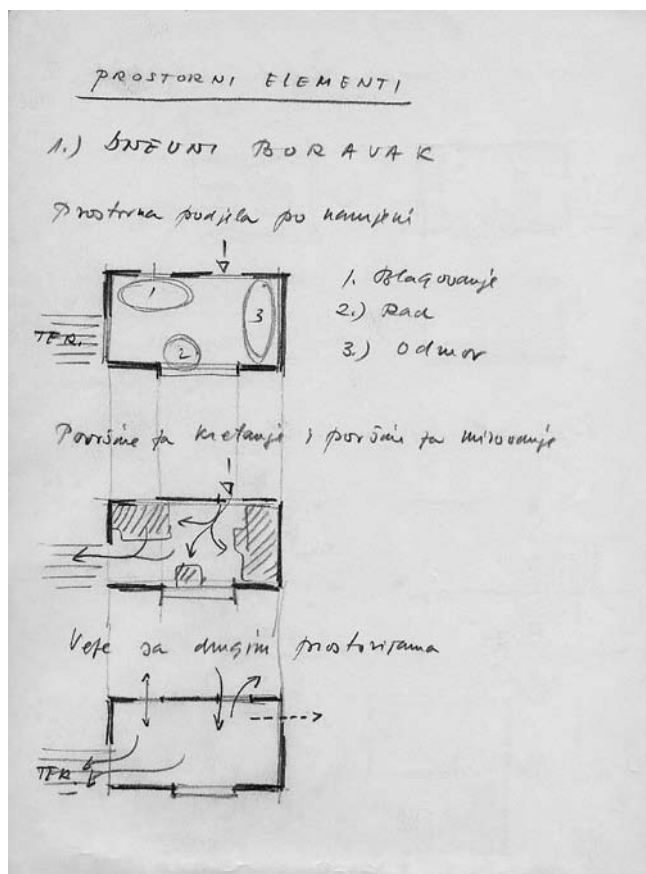 PROSTORNI ELEMENTI
1.) DNEVNI BORAVAK
Prostorna podjela po namjeni
1
2
3
TER.
1. Blagovanje
2.) Rad
3.) Odmor
Površine za kretanje i površine za mirovanje
Veze sa drugim prostorijama
TER.